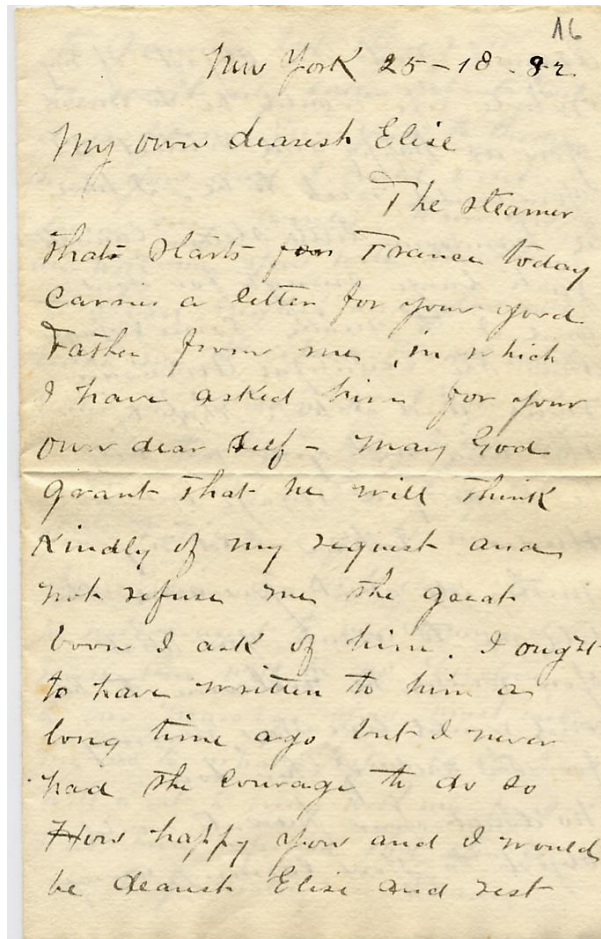 A6
New York 25-18-82.
My own dearest Elise
The steamer
that starts for France today
carries a letter for your good
Father from me, in which
I have asked him for your
own dear self - may God
grant that he will think
kindly of my request and
not refuse me the great
boon I ask of him. I ought
to have written to him a
long time ago but I never
had the courage to do so
How happy you and I would
be dearest Elise and rest